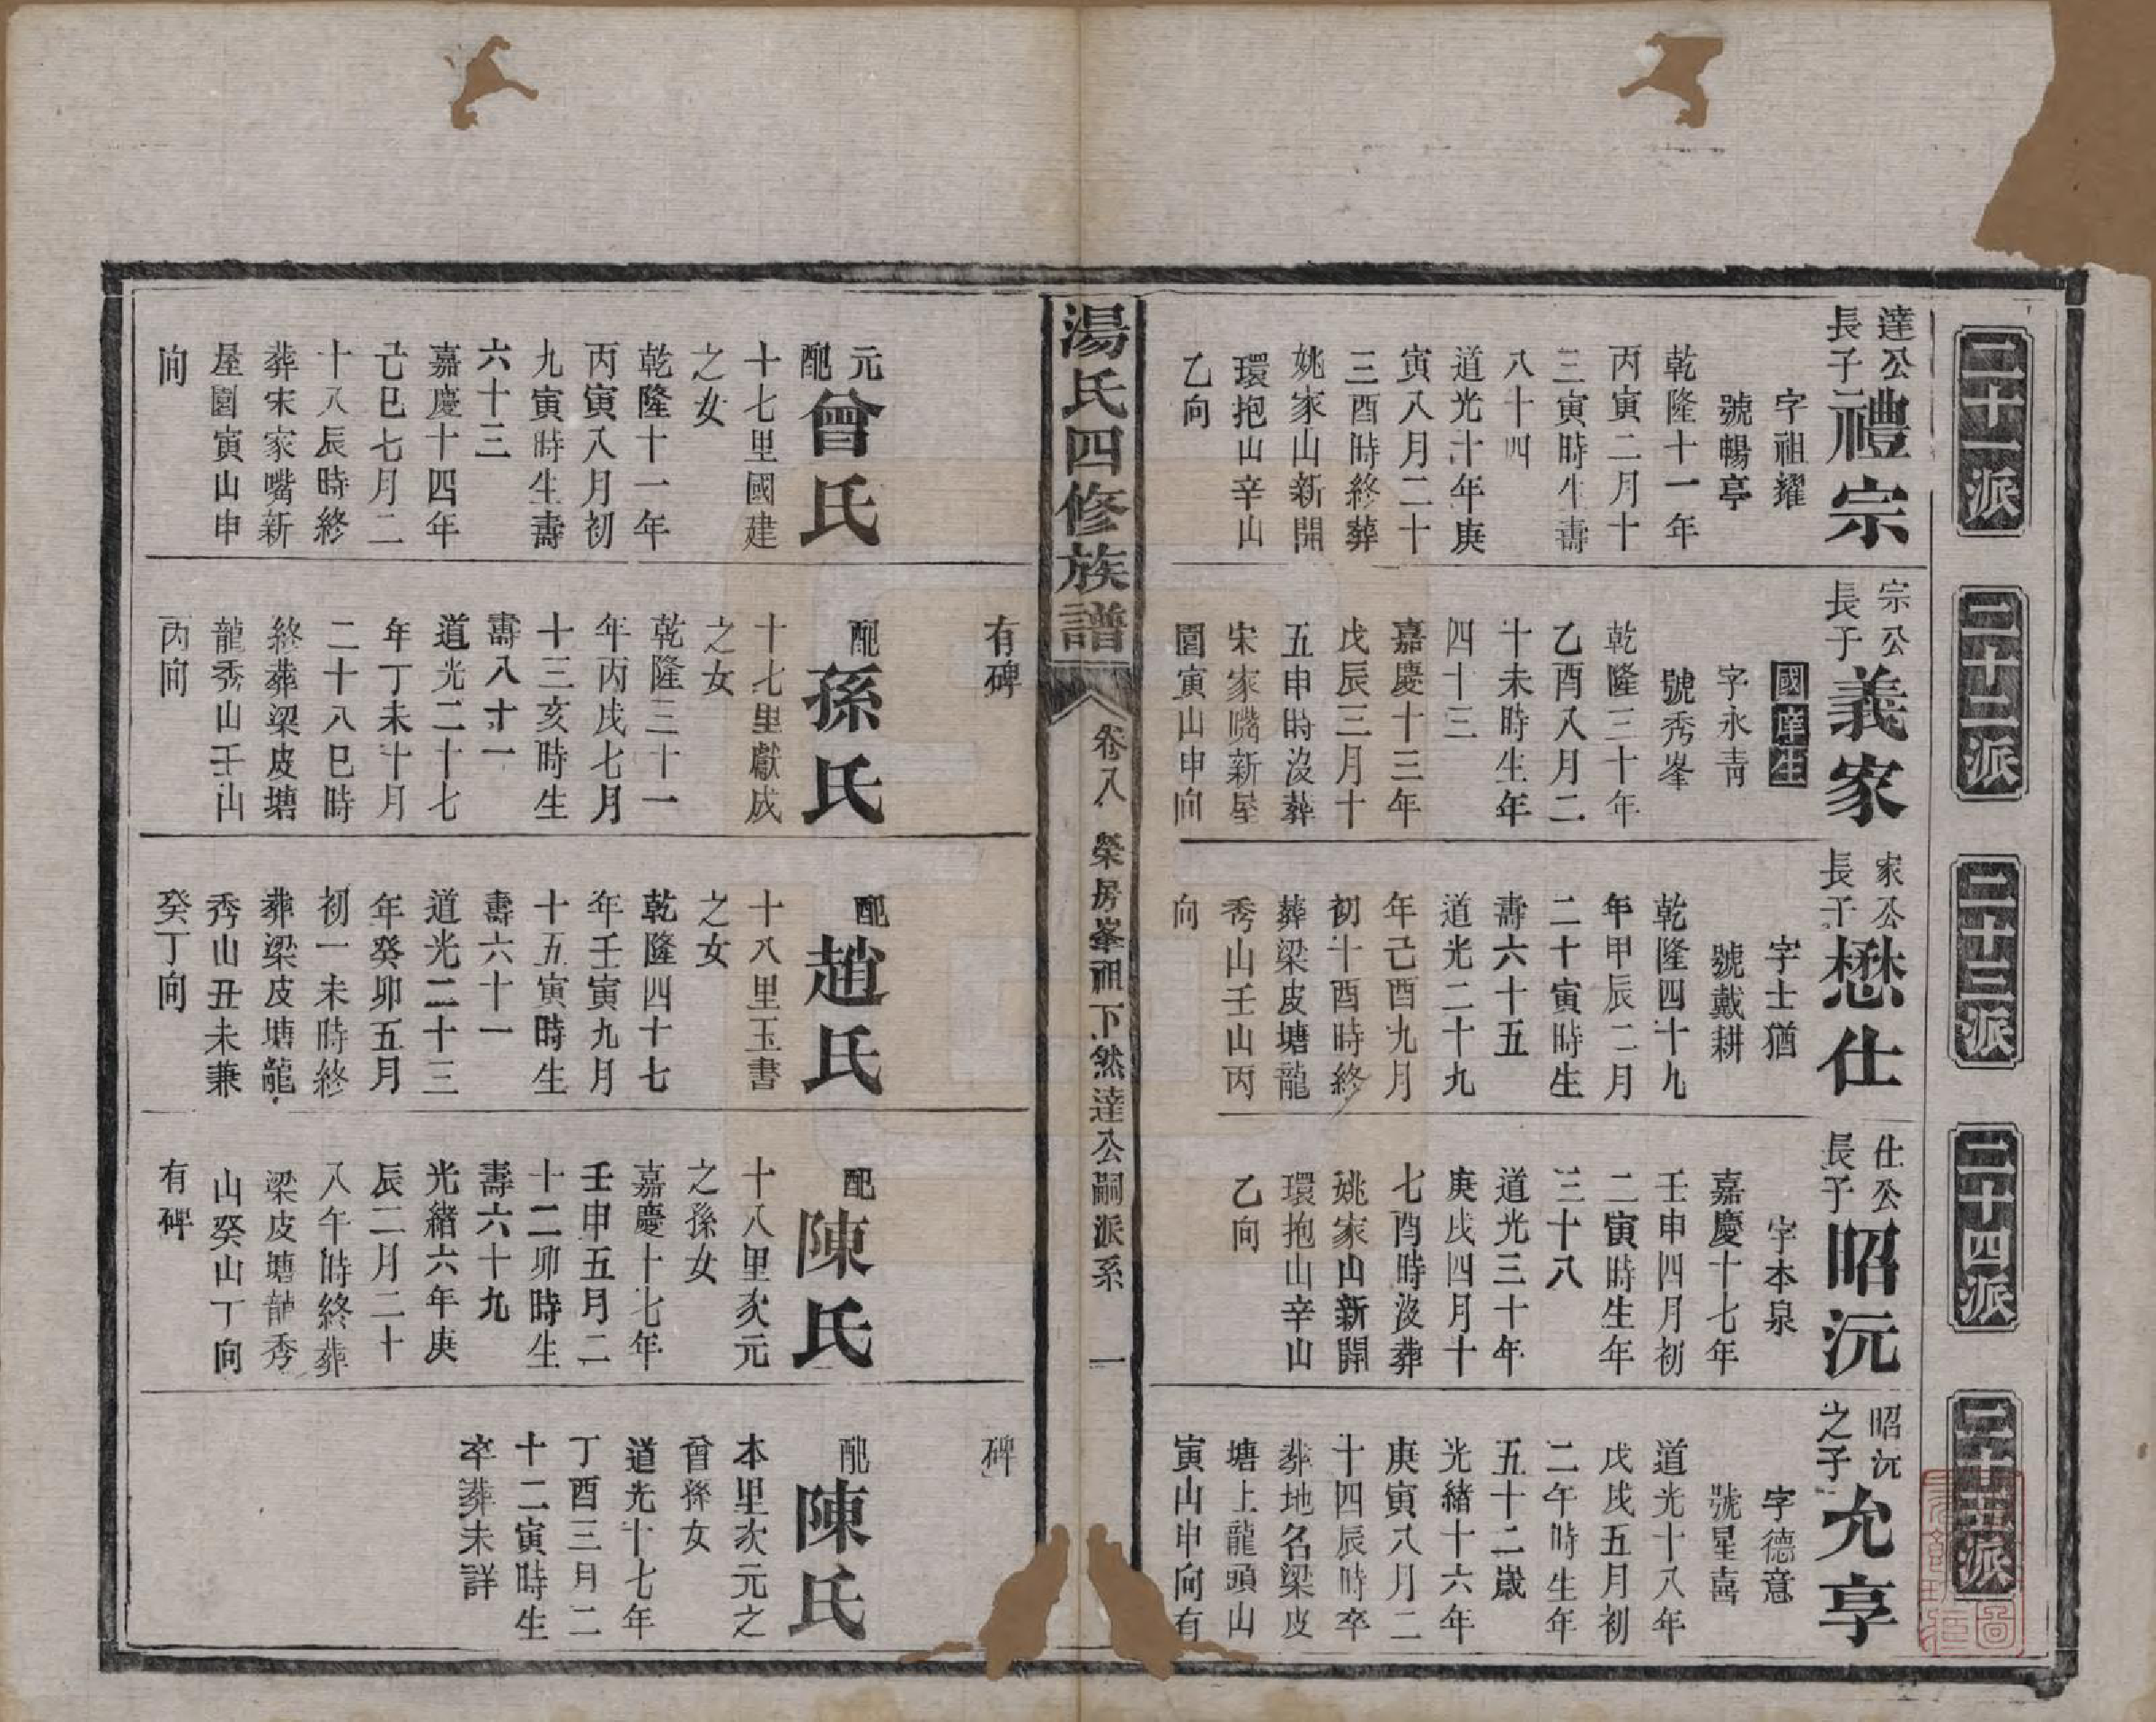 二十一派
二十二派
二十三派
二十四派
二十五派
達公
長子
禮宗
字祖耀
號暢亭
乾隆十一年
丙寅二月十
三寅時生壽
八十四
道光十年庚
寅八月二十
三酉時終葬
姚家山新開
環抱山辛山
乙向
宗公
長子
義家
國庠生
字永靑
號秀峯
乾隆三十年
乙酉八月二
十未時生年
四十三
嘉慶十三年
戊辰三月十
五申時没葬
宋家嘴新屋
園寅山申向
有碑
家公
長子
懋仕
字士猶
號戴耕
乾隆四十九
年甲辰二月
二十寅時生
壽六十五
道光二十九
年己酉九月
初十酉時終
葬梁皮塘龍
秀山壬山丙
向
仕公
長子
昭沅
字本泉
嘉慶十七年
壬申四月初
二寅時生年
三十八
道光三十年
庚戌四月十
七酉時没葬
姚家山新開
環抱山辛山
乙向
昭沅
之子
允享
字德意
號星喜
道光十八年
戊戌五月初
二午時生年
五十二歲
光緒十六年
庚寅八月二
十四辰時卒
葬地名梁皮
塘上龍頭山
寅山申向有
碑
湯氏四修族譜
卷八
榮房峯祖下然達公嗣派系
一
元
配
曾氏
十七里國建
之女
乾隆十一年
丙寅八月初
九寅時生壽
六十三
嘉慶十四年
己巳七月二
十八辰時終
葬宋家嘴新
屋園寅山申
向
配
孫氏
十七里獻成
之女
乾隆三十一
年丙戌七月
十三亥時生
壽八十一
道光二十七
年丁未十月
二十八巳時
終葬梁皮塘
龍秀山壬山
丙向
配
趙氏
十八里玉書
之女
乾隆四十七
年壬寅九月
十五寅時生
壽六十一
道光二十三
年癸卯五月
初一未時終
葬梁皮塘龍
秀山丑未兼
癸丁向
配
陳氏
十八里次元
之孫女
嘉慶十七年
壬申五月二
十二卯時生
壽六十九
光緒六年庚
辰二月二十
八午時終葬
梁皮塘龍秀
山癸山丁向
有碑
配
陳氏
本里次元之
曾孫女
道光十七年
丁酉三月二
十二寅時生
卒葬未詳